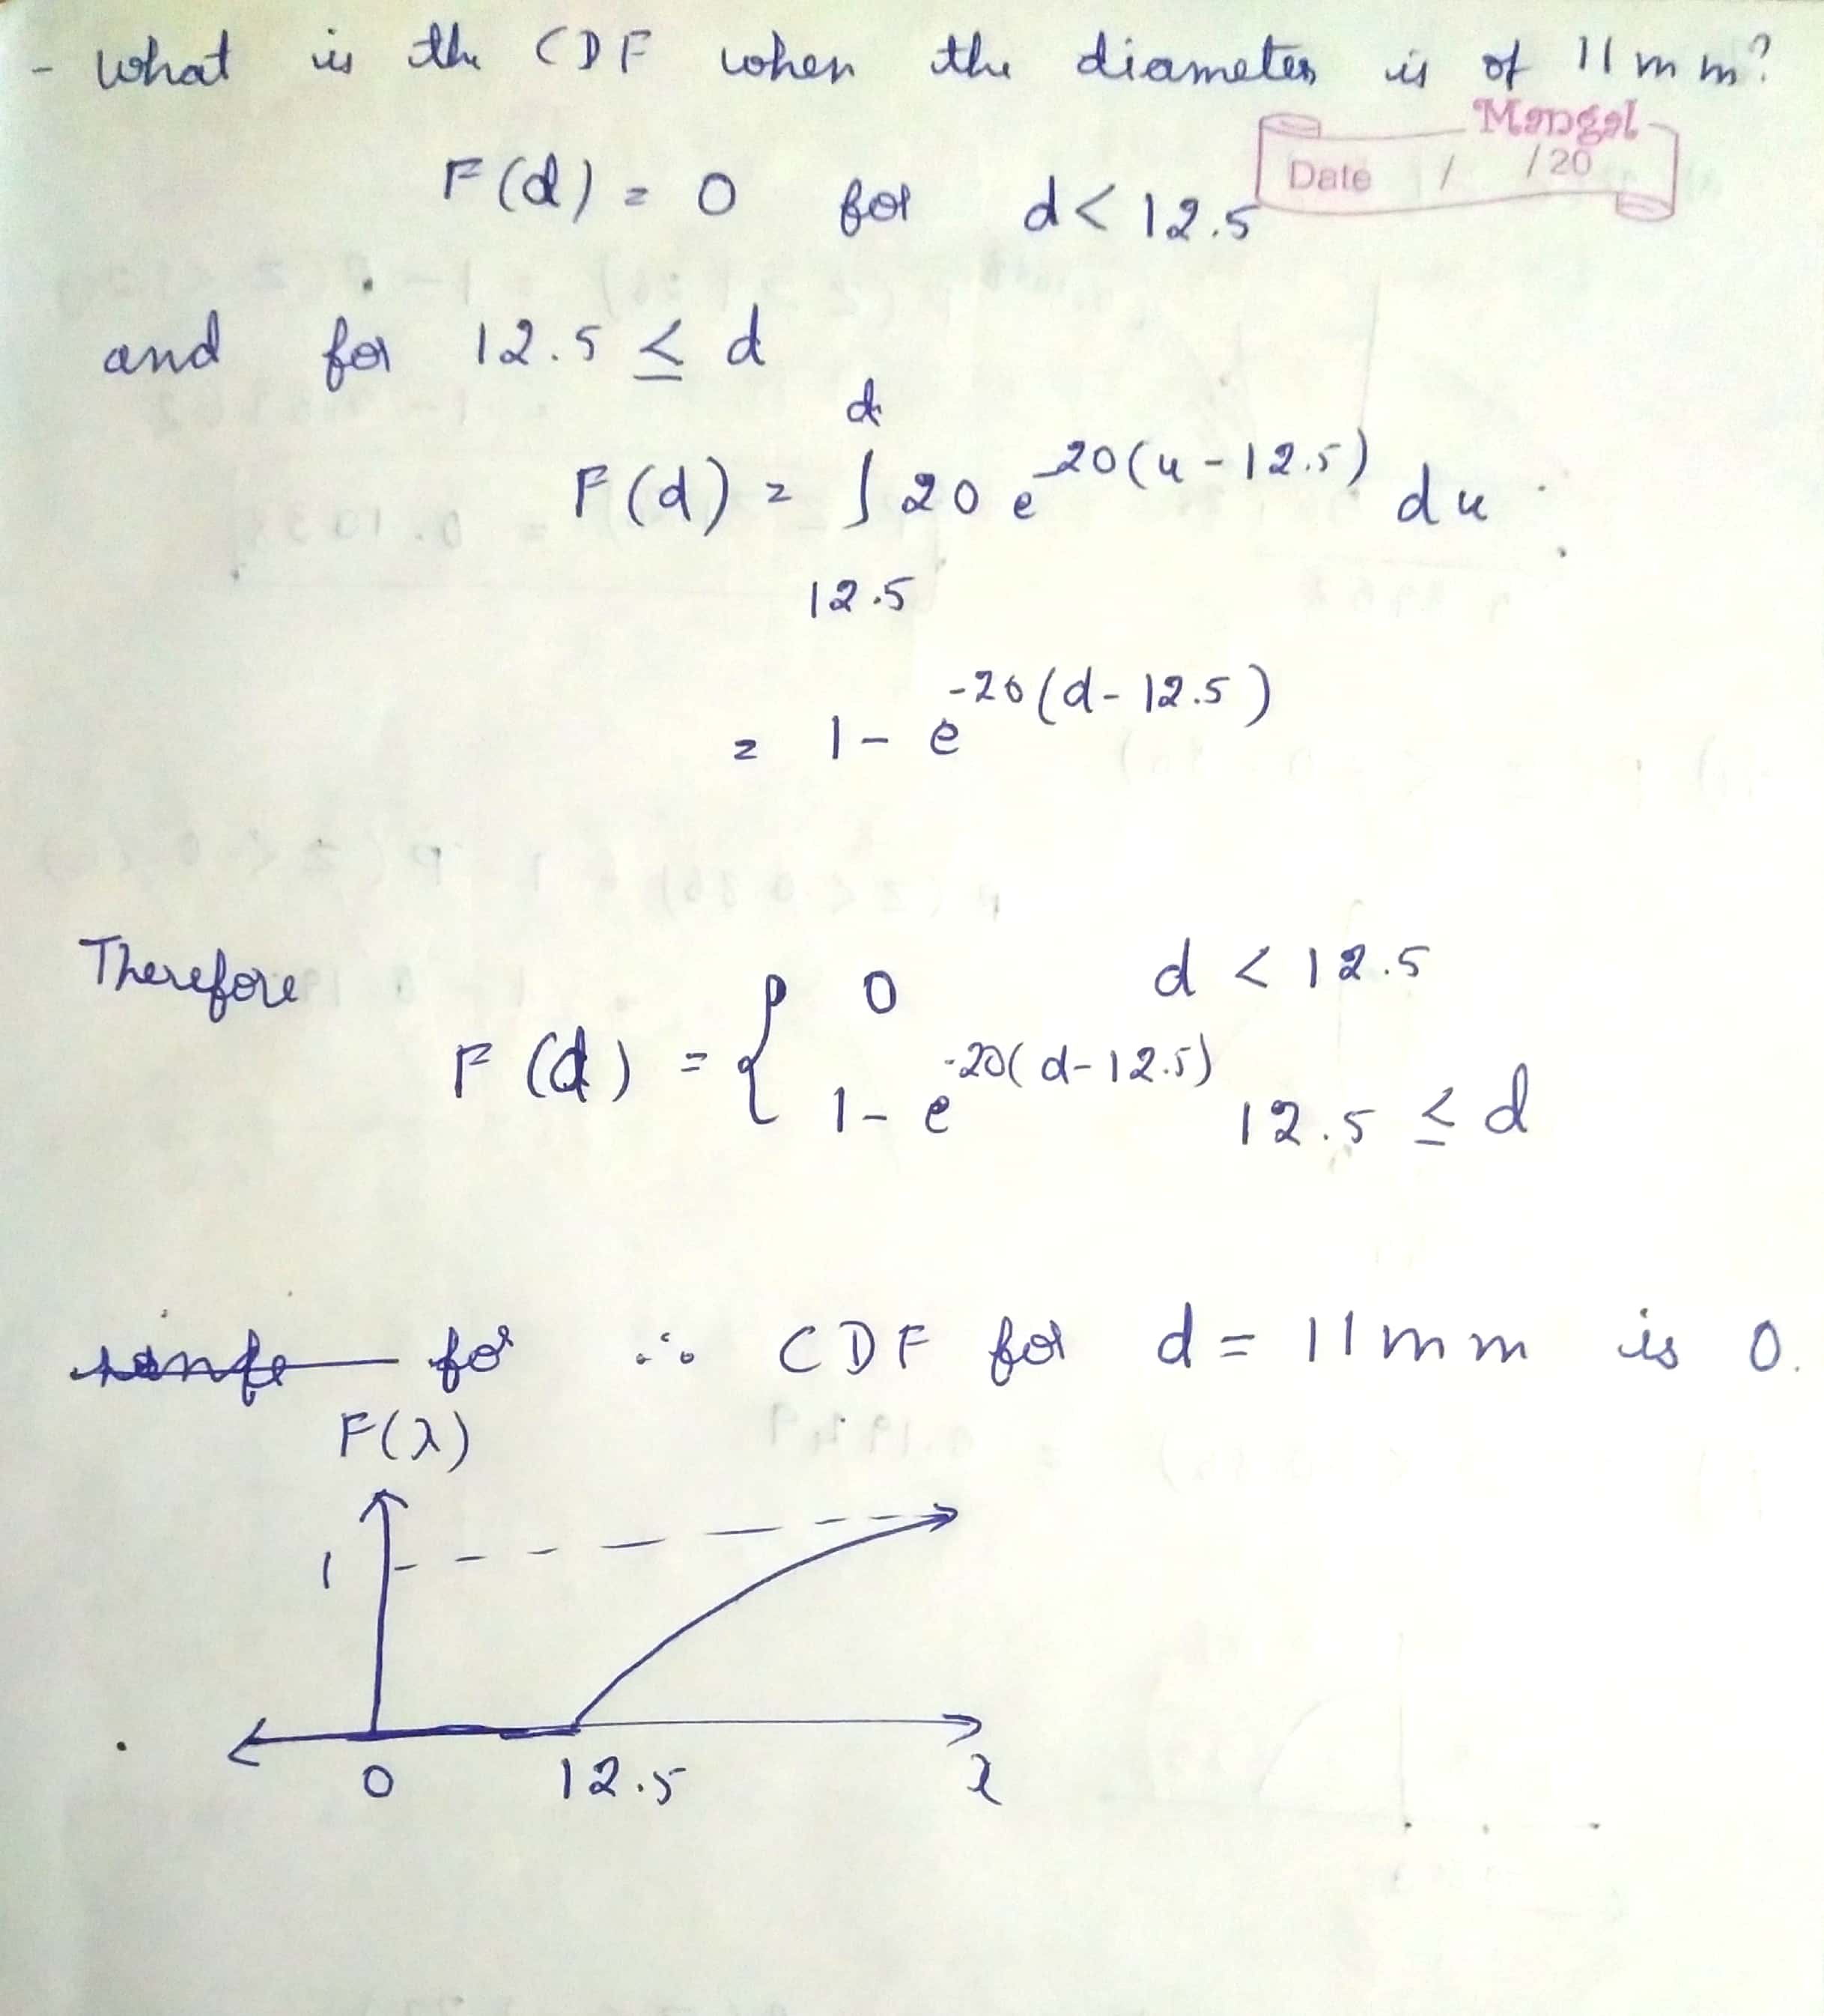 - What is the CDF when the diameter is of 11mm?
Mangal
Date / /20
F(d) = 0 for d< 12.5
and for 12.5 ≤ d
d
F(d) = ∫ 20 e^-20(u-12.5) du
12.5
= 1- e^-20(d-12.5)
Therefore
0 d < 12.5
F(d) = {
1- e^-20(d-12.5) 12.5 ≤ d
for ∴ CDF for d = 11mm is 0.
F(λ)
1
0 12.5